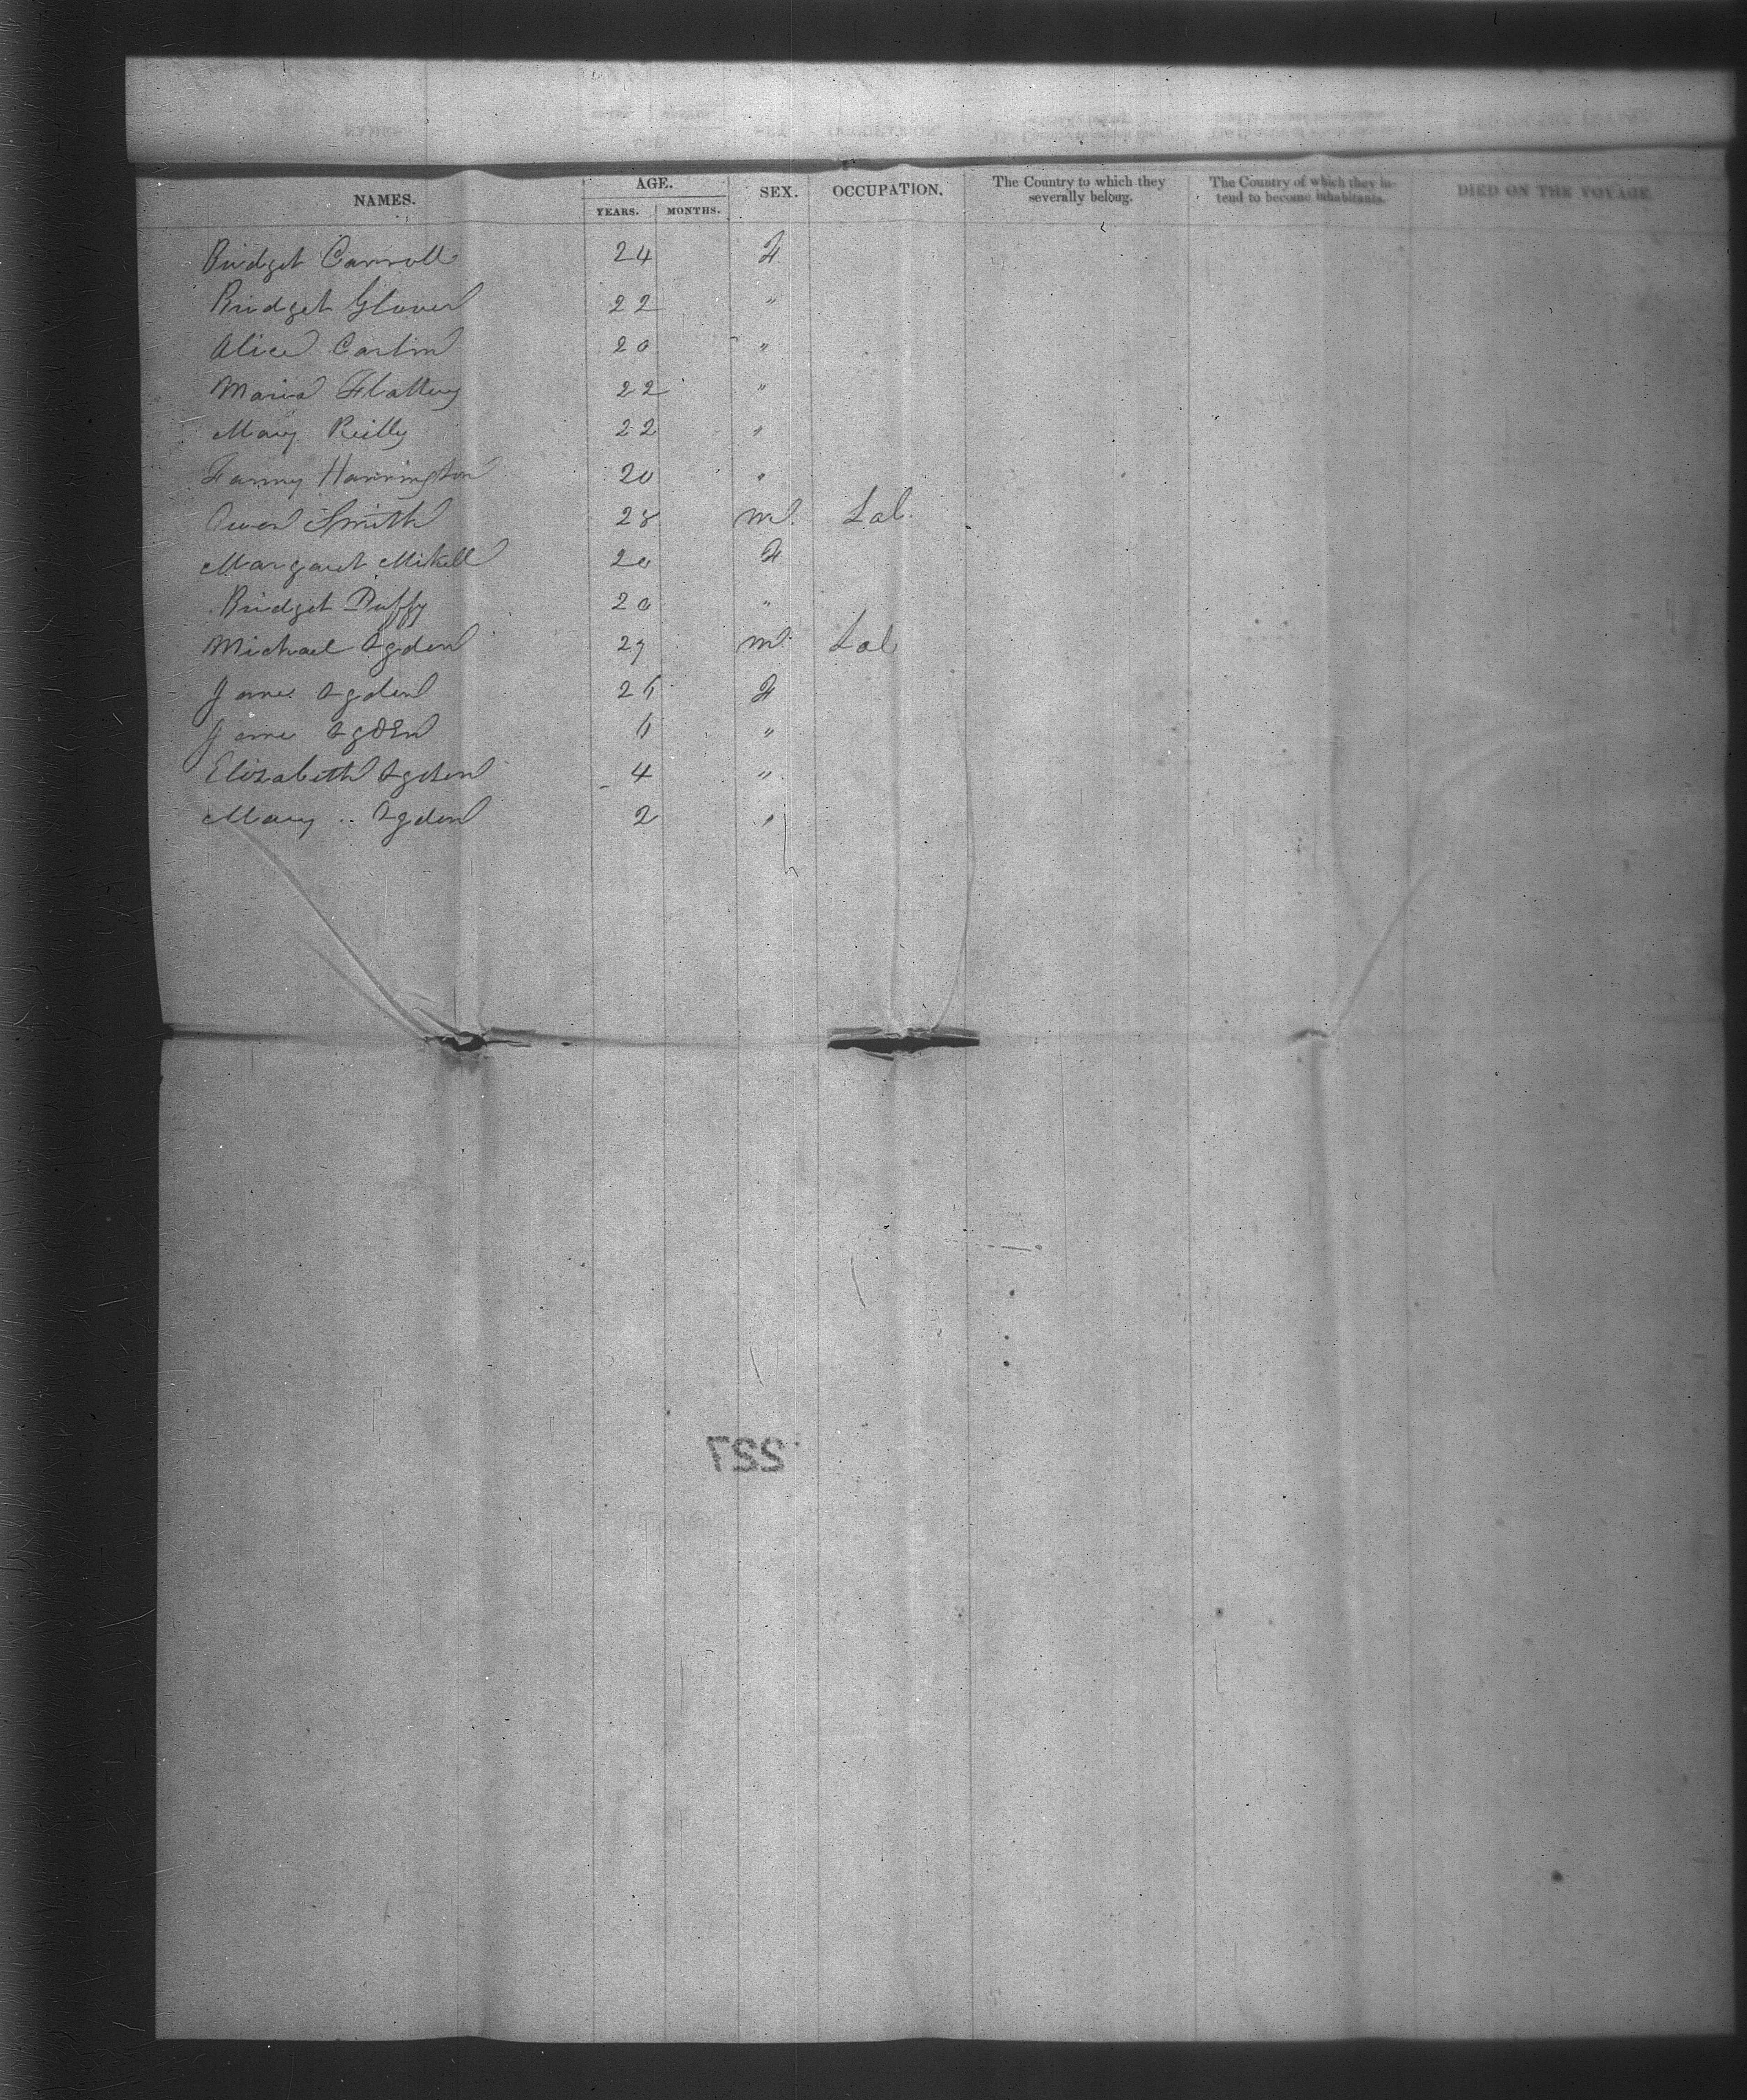 NAMES. AGE. YEARS. MONTHS. SEX. OCCUPATION. The Country to which they severally belong. The Country of which they intend to become inhabitants. DIED ON THE VOYAGE
Bridget Carroll 24 F
Bridget Glover 22 "
Alice Carlin 20 "
Maria Flattery 22 "
Mary Reilly 22 "
Fanny Harrington 20 "
Owen Smith 28 M. Lab.
Margaret Mitchell 20 F
Bridget Duffy 20 "
Michael Ogden 27 M. Lab
Jane Ogden 26 F
Jane Ogden 6 "
Elizabeth Ogden 4 "
Mary Ogden 2 "
227